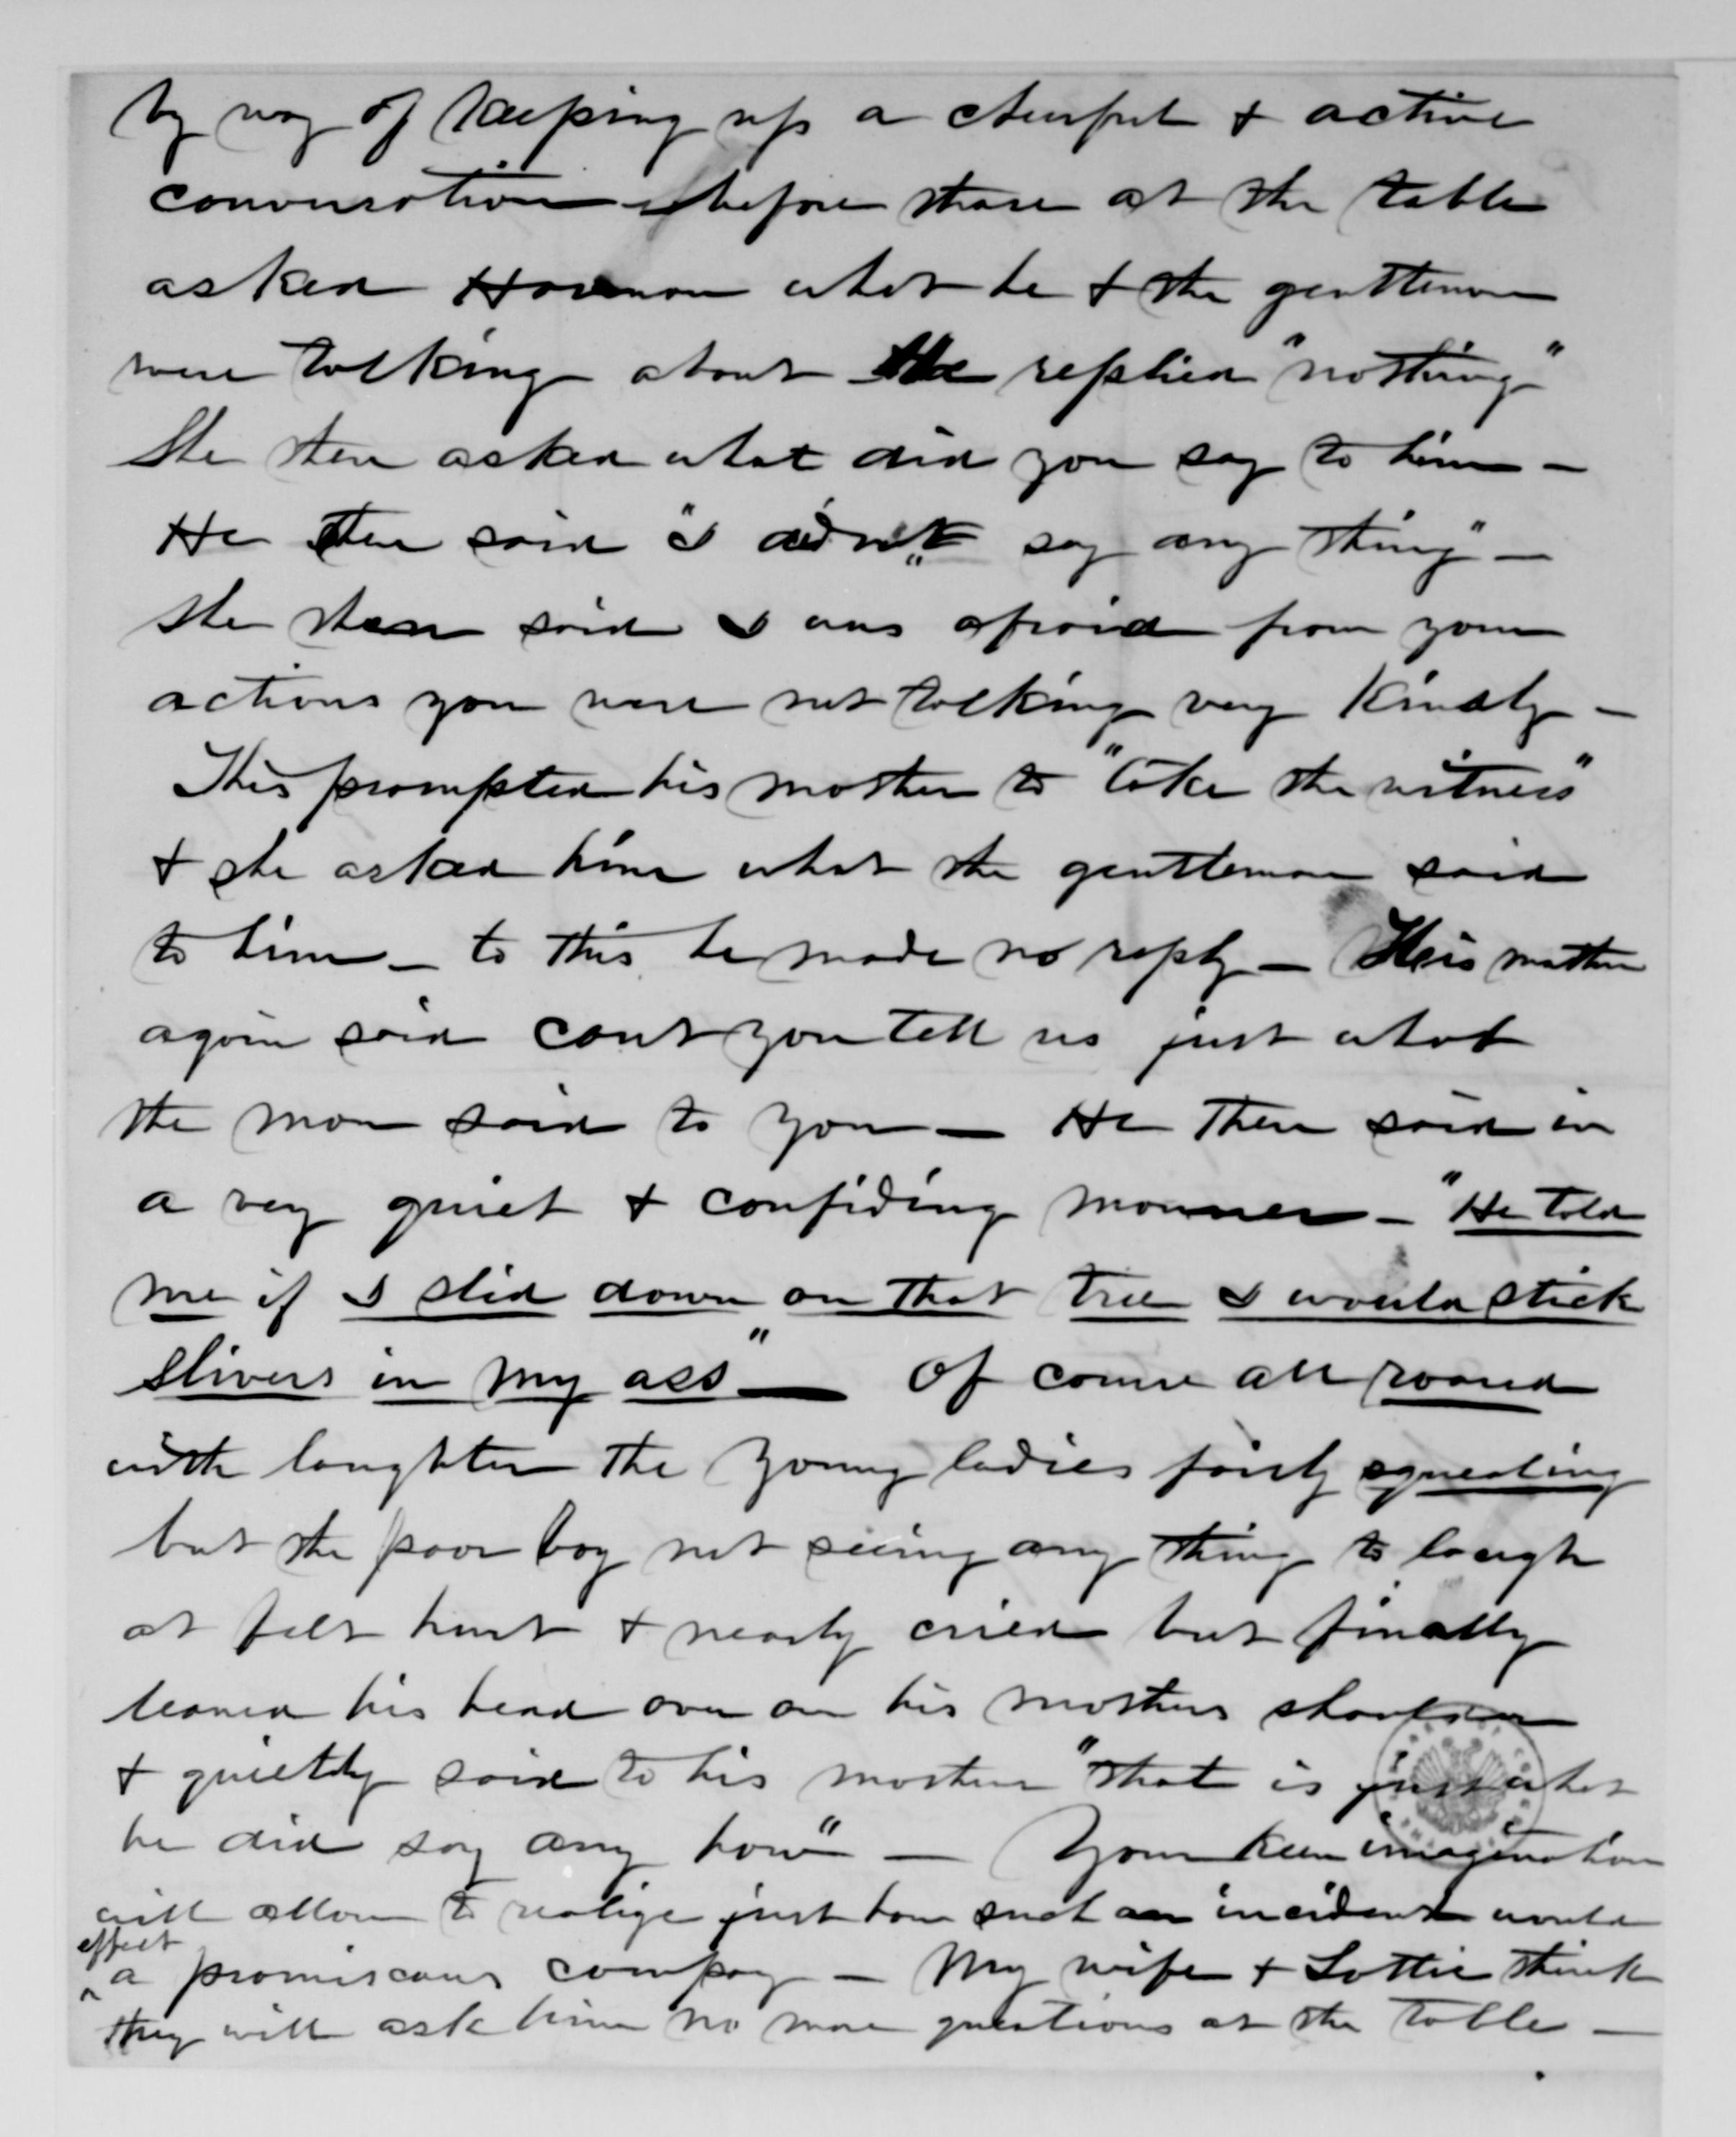 by way of keeping up a cheerful & active
conversation before those at the table
asked Harmon what he & the gentleman
were talking about He replied "nothing"
She then asked what did you say to him —
He then said "I didn't say any thing" —
she then said I was afraid from your
actions you were not talking very kindly —
This prompted his mother to "take the witness"
& she asked him what the gentleman said
to him — to this he made no reply — His mother
again said cant you tell us just what
the man said to you — He then said in
a very quiet & confiding manner — "He told
me if I slid down on that tree I would stick
slivers in my ass" — Of course all roared
with laughter the young ladies fairly squealing
but the poor boy not seeing any thing to laugh
at felt hurt & nearly cried but finally
leaned his head over on his mothers shoulder
& quietly said to his mother "that is just what
he did say any how" — Your keen imagination
will allow to realize just how such an incident would
effect
a promiscous company — My wife & Lottie think
they will ask him no more questions at the table —